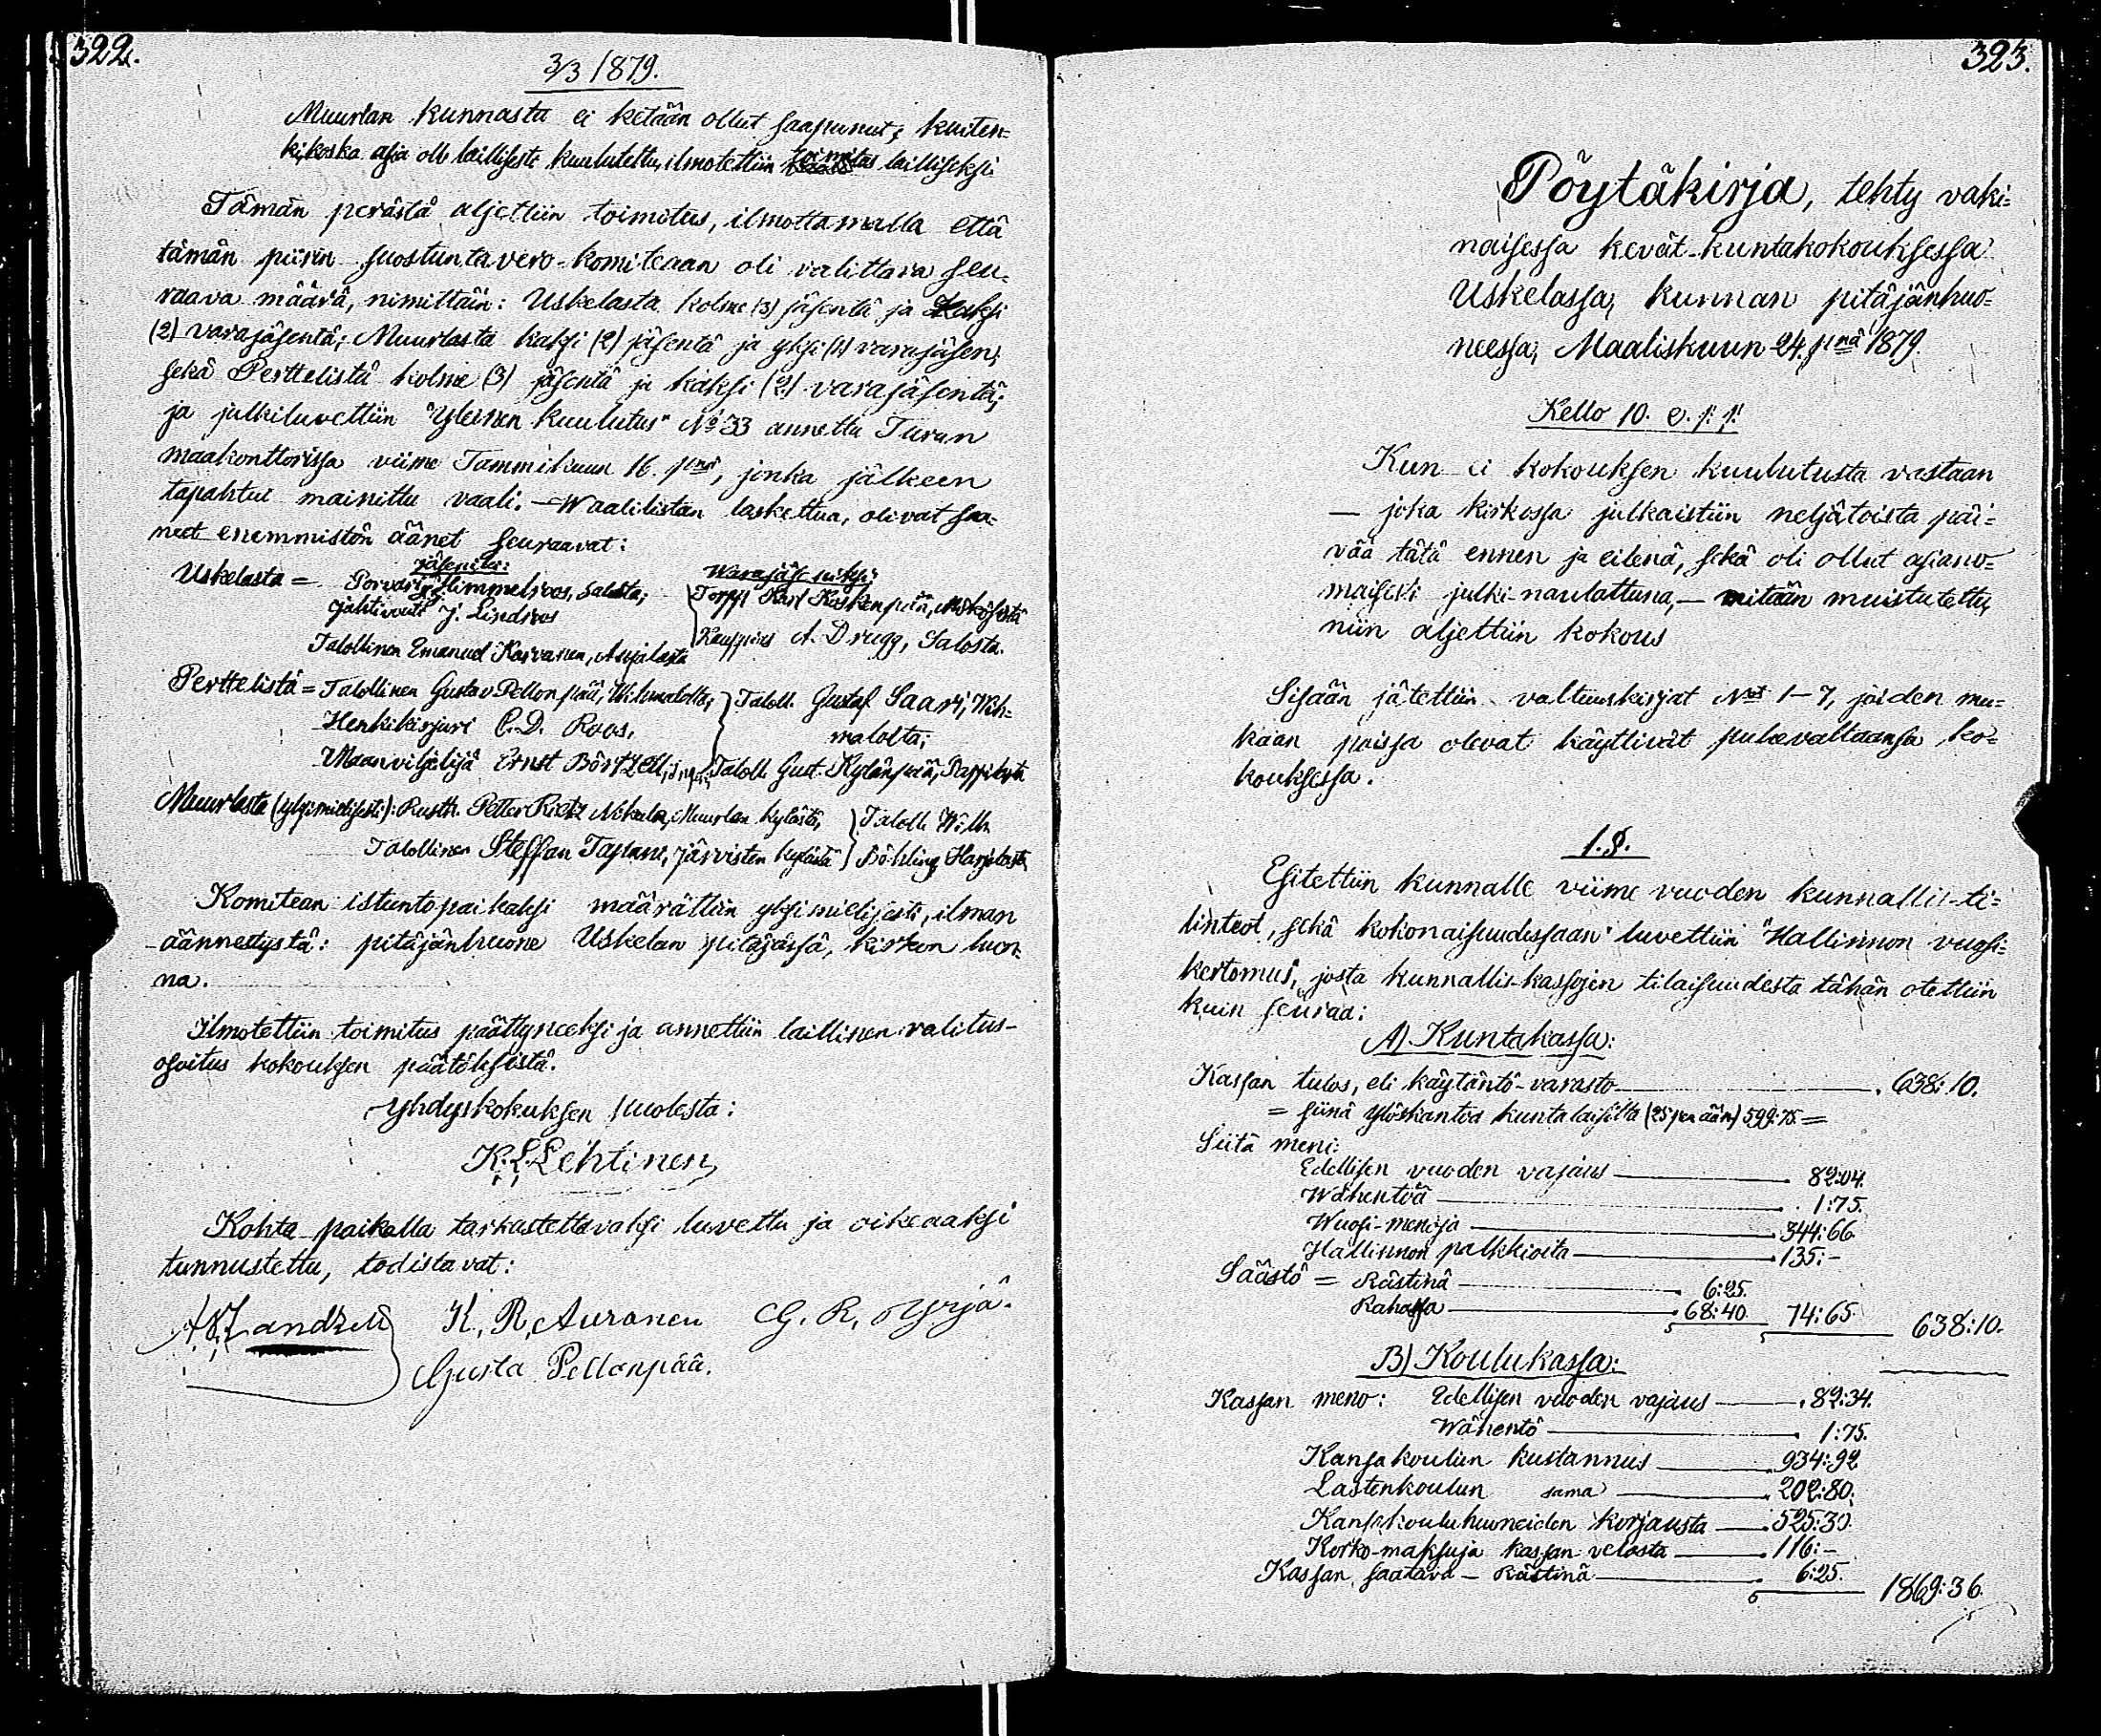 322.
3/3 1879.
Muurlan kunnasta ei ketään ollut saapunut; kuiten-
ki, koska asia oli laillisesti kuulutettu, ilmotettiin toimitus lailliseksi.
Tämän perästä aljettiin toimitus, ilmottamalla että
tämän piirin suostuntavero-komiteaan oli valittava seu-
raava määrä, nimittäin: Uskelasta kolme (3) jäsentä ja kaksi
(2) varajäsentä; Muurlasta kaksi (2) jäsentä ja yksi (1) varajäsen;
sekä Perttelistä kolme (3) jäsentä ja kaksi (2) varajäsentä;
ja julkiluvettiin "Yleinen kuulutus" No 33 annettu Turun
maakonttorissa viime Tammikuun 16. pnä, jonka jälkeen
tapahtui mainittu vaali. — Waalilistan laskettua, olivat saa-
neet enemmistön äänet seuraavat:
jäseniksi: Warajäseniksi:
Uskelasta = Porvari Himmelroos, Salosta; Torpp. Karl Koskenpää,
Jahtivouti J. Lindroos
Kauppias A. Drugg, Salosta.
Talollinen Emanuel Karvanen, Anjalasta
Perttelistä = Talollinen Gustav Pellonpää, Wihmalolta; Taloll. Gustaf Saari, Wih-
Henkikirjuri C. D. Roos, malolta;
Maanviljelijä Ernst Börtzell, Taloll. Gust. Kylänpää,
Muurlasta (yksimielisesti): Rusth. Petter Nikula, Muurlan kylästä, Taloll. Wilh.
Talollinen Steffan Tapani, Järvisten kylästä Böhling, Harjulasta
Komitean istuntopaikaksi määrättiin yksimielisesti, ilman
äännestystä: pitäjänhuone Uskelan pitäjässä, kirkon luo-
na.
Ilmotettiin toimitus päättyneeksi ja annettiin laillinen valitus-
osoitus kokouksen päätöksistä.
Yhdyskokuksen puolesta:
K. L. Lehtinen
Kohta paikalla tarkastettavaksi luvettu ja oikeaaksi
tunnustettu, todistavat:
K. R. Auranen G. R. Yrjä.
Gusta Pellonpää.
323.
Pöytäkirja, tehty vaki-
naisessa kevät-kuntakokouksessa
Uskelassa, kunnan pitäjänhuo-
neessa, Maaliskuun 24. pnä 1879.
Kello 10. e. p. p.
Kun ei kokouksen kuulutusta vastaan
— joka kirkossa julkaistiin neljätoista päi-
vää tätä ennen ja eilenä, sekä oli ollut asiano-
maisesti julki-naulattuna, — mitään muistutettu,
niin aljettiin kokous
Sisään jätettiin valtuuskirjat Not 1–7, joiden mu-
kaan poissa olevat käyttivät puhevaltaansa ko-
kouksessa.
1.§.
Esitettiin kunnalle viime vuoden kunnallis-ti-
linteot, sekä kokonaisuudessaan luvettiin "Hallinnon vuosi-
kertomus", josta kunnallis-kassojen tilaisuudesta tähän otettiin
kuin seuraa:
A) Kuntakassa:
Kassan tulos, eli käytäntö-varasto 638:10.
= siinä ylöskantoa kuntalaisilta (25 p:en ääni) 599:75 =
Siitä meni:
Edellisen vuoden vajaus 82:04.
Wähentöä 1:75.
Wuosi-menoja 344:66
Hallinnon palkkioita 135:-
Säästö = Rästinä 6:25.
Rahassa 68:40. 74:65 638:10.
B) Koulukassa:
Kassan meno: Edellisen vuoden vajaus 82:34.
Wähentö 1:75.
Kansakoulun kustannus 934:92
Lastenkoulun sama 202:80.
Kansakouluhuoneiden korjausta 525:30.
Korko-maksuja kassan velasta 116:-
Kassan saatava – Rästinä 6:25. 1869:36.